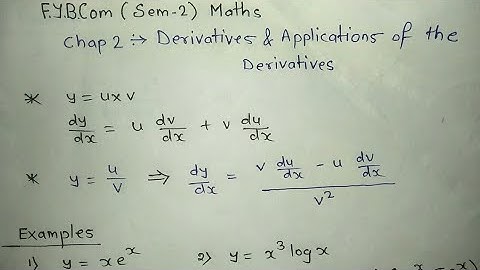 F.Y.B.Com (Sem-2) Maths
Chap 2 :→ Derivatives & Applications of the
Derivatives
* y = u x v
dy/dx = u dv/dx + v du/dx
* y = u/v ⇒ dy/dx = (v du/dx - u dv/dx)/v²
Examples
1) y = x eˣ 2) y = x³ log x